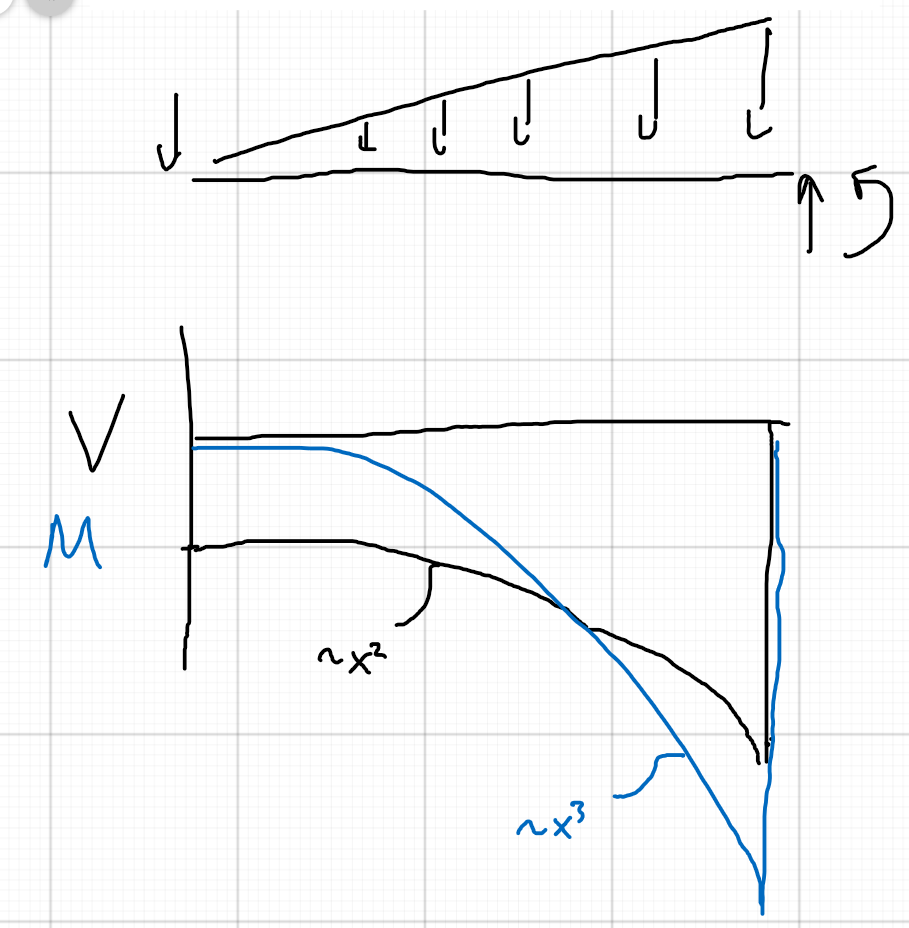 V
M
~x²
~x³